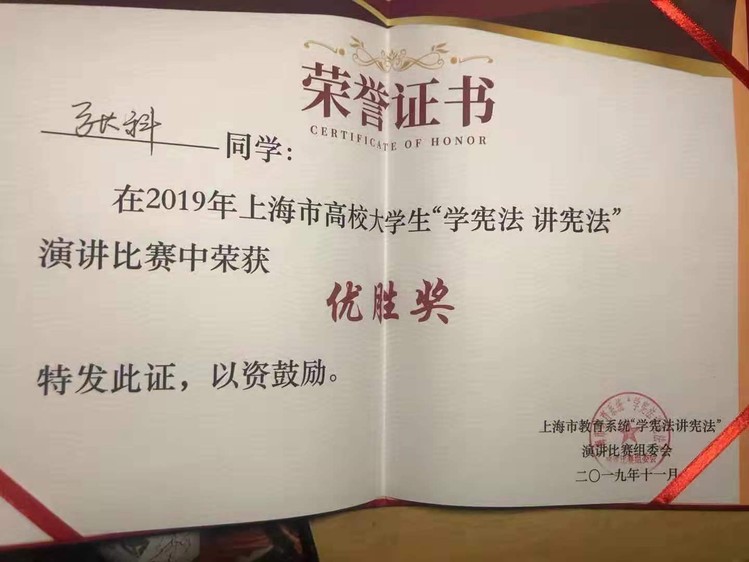 荣誉证书
CERTIFICATE OF HONOR
张科 同学：
在2019年上海市高校大学生“学宪法 讲宪法”
演讲比赛中荣获
优胜奖
特发此证，以资鼓励。
上海市教育系统“学宪法讲宪法”
演讲比赛组委会
二〇一九年十一月